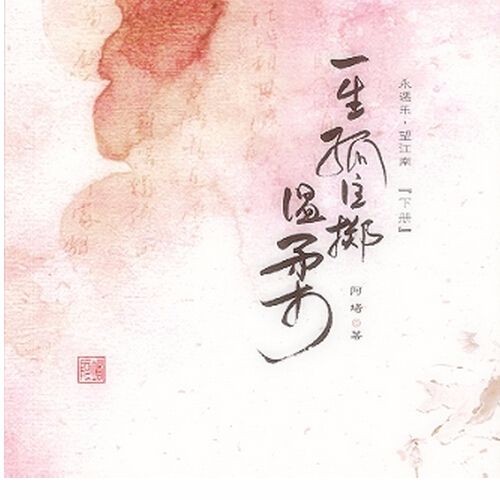 永遇乐·望江南 『下册』
一生孤注掷
温柔
阿堵 著